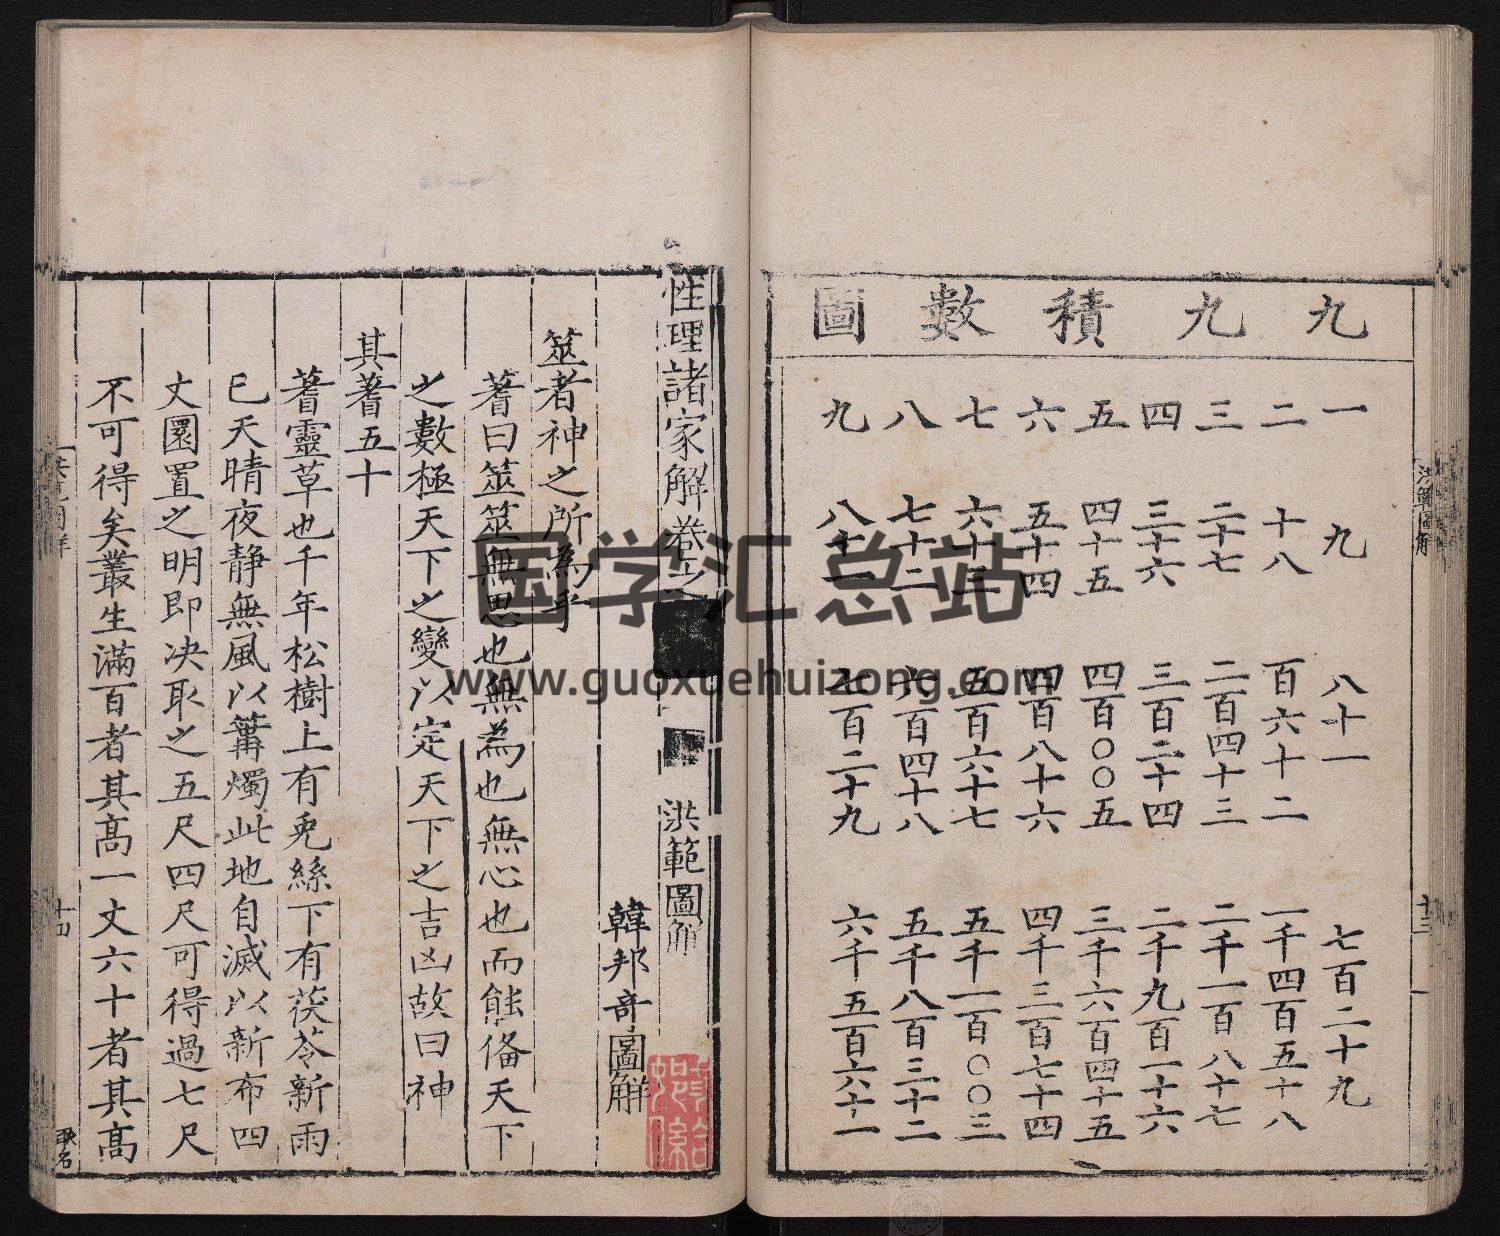 九九積數圖
一 九 八十一 七百二十九
二 十八 百六十二 一千四百五十八
三 二十七 二百四十三 二千一百八十七
四 三十六 三百二十四 二千九百一十六
五 四十五 四百〇〇五 三千六百四十五
六 五十四 四百八十六 四千三百七十四
七 六十三 五百六十七 五千一百〇〇三
八 七十二 六百四十八 五千八百三十二
九 八十一 七百二十九 六千五百六十一
性理諸家解卷之 洪範圖解
韓邦奇圖解
筮者神之所為乎
蓍曰筮筮無思也無為也無心也而能俻天下
之數極天下之變以定天下之吉凶故曰神
其蓍五十
蓍靈草也千年松樹上有兎絲下有茯苓新雨
已天晴夜静無風以篝燭此地自滅以新布四
丈圜置之明即决取之五尺四尺可得過七尺
不可得矣叢生滿百者其髙一丈六十者其髙
十四
国学汇总站
www.guoxuehuizong.com